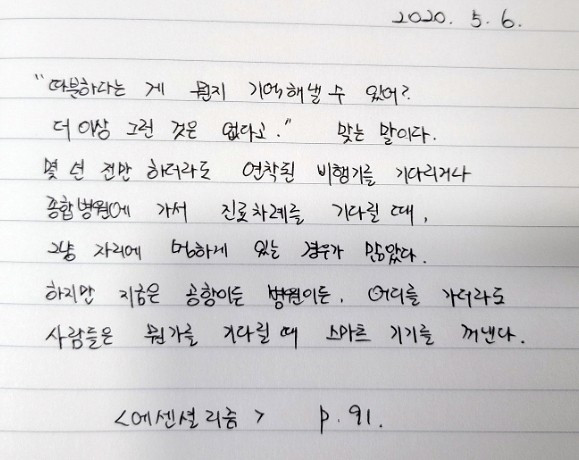 2020. 5. 6.
"따분하다는 게 뭔지 기억해낼 수 있어?
더 이상 그런 것은 없다고." 맞는 말이다.
몇 년 전만 하더라도 연착된 비행기를 기다리거나
종합병원에 가서 진료차례를 기다릴 때,
그냥 자리에 멍하게 있는 경우가 많았다.
하지만 지금은 공항이든 병원이든, 어디를 가더라도
사람들은 뭔가를 기다릴 때 스마트 기기를 꺼낸다.
<에센셜리즘> p. 91.